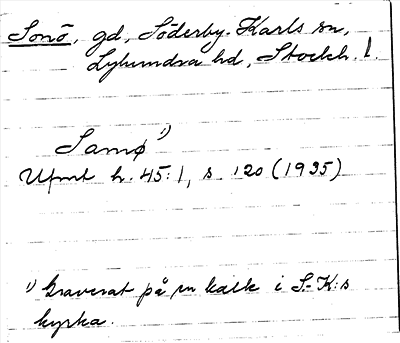 Sonö, gd, Söderby-Karls sn,
Lyhundra hd, Stockh. l.
Samø ¹)
Ufmt h. 45:1, s 120 (1935)
¹) Graverat på en kalk i S.-K:s
kyrka.